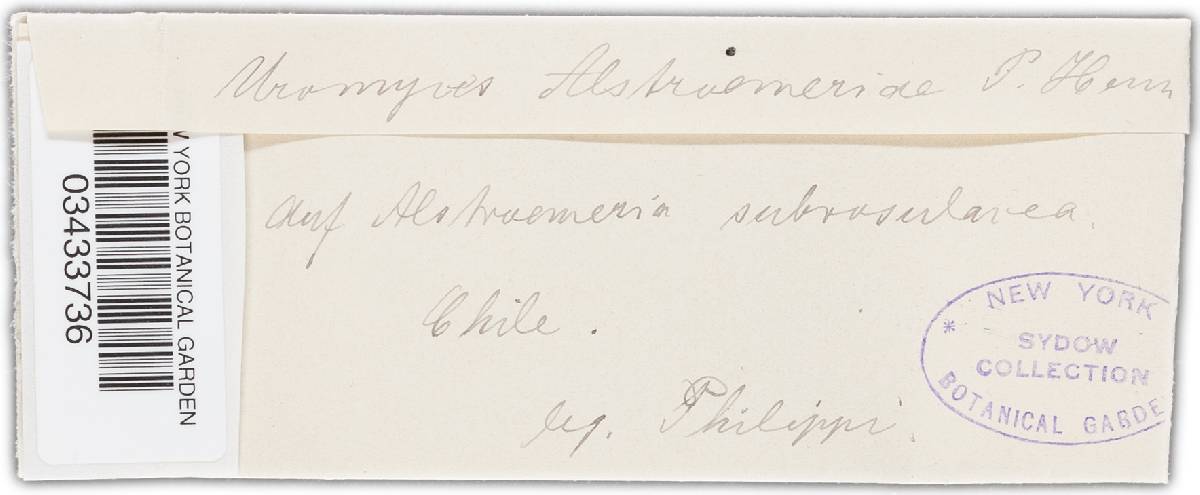 Uromyces Alstroemeriae P. Henn
auf Alstroemeria subrosulacea.
Chile.
leg. Philippi.
NEW YORK
SYDOW
COLLECTION
BOTANICAL GARDE
*
YORK BOTANICAL GARDEN
03433736